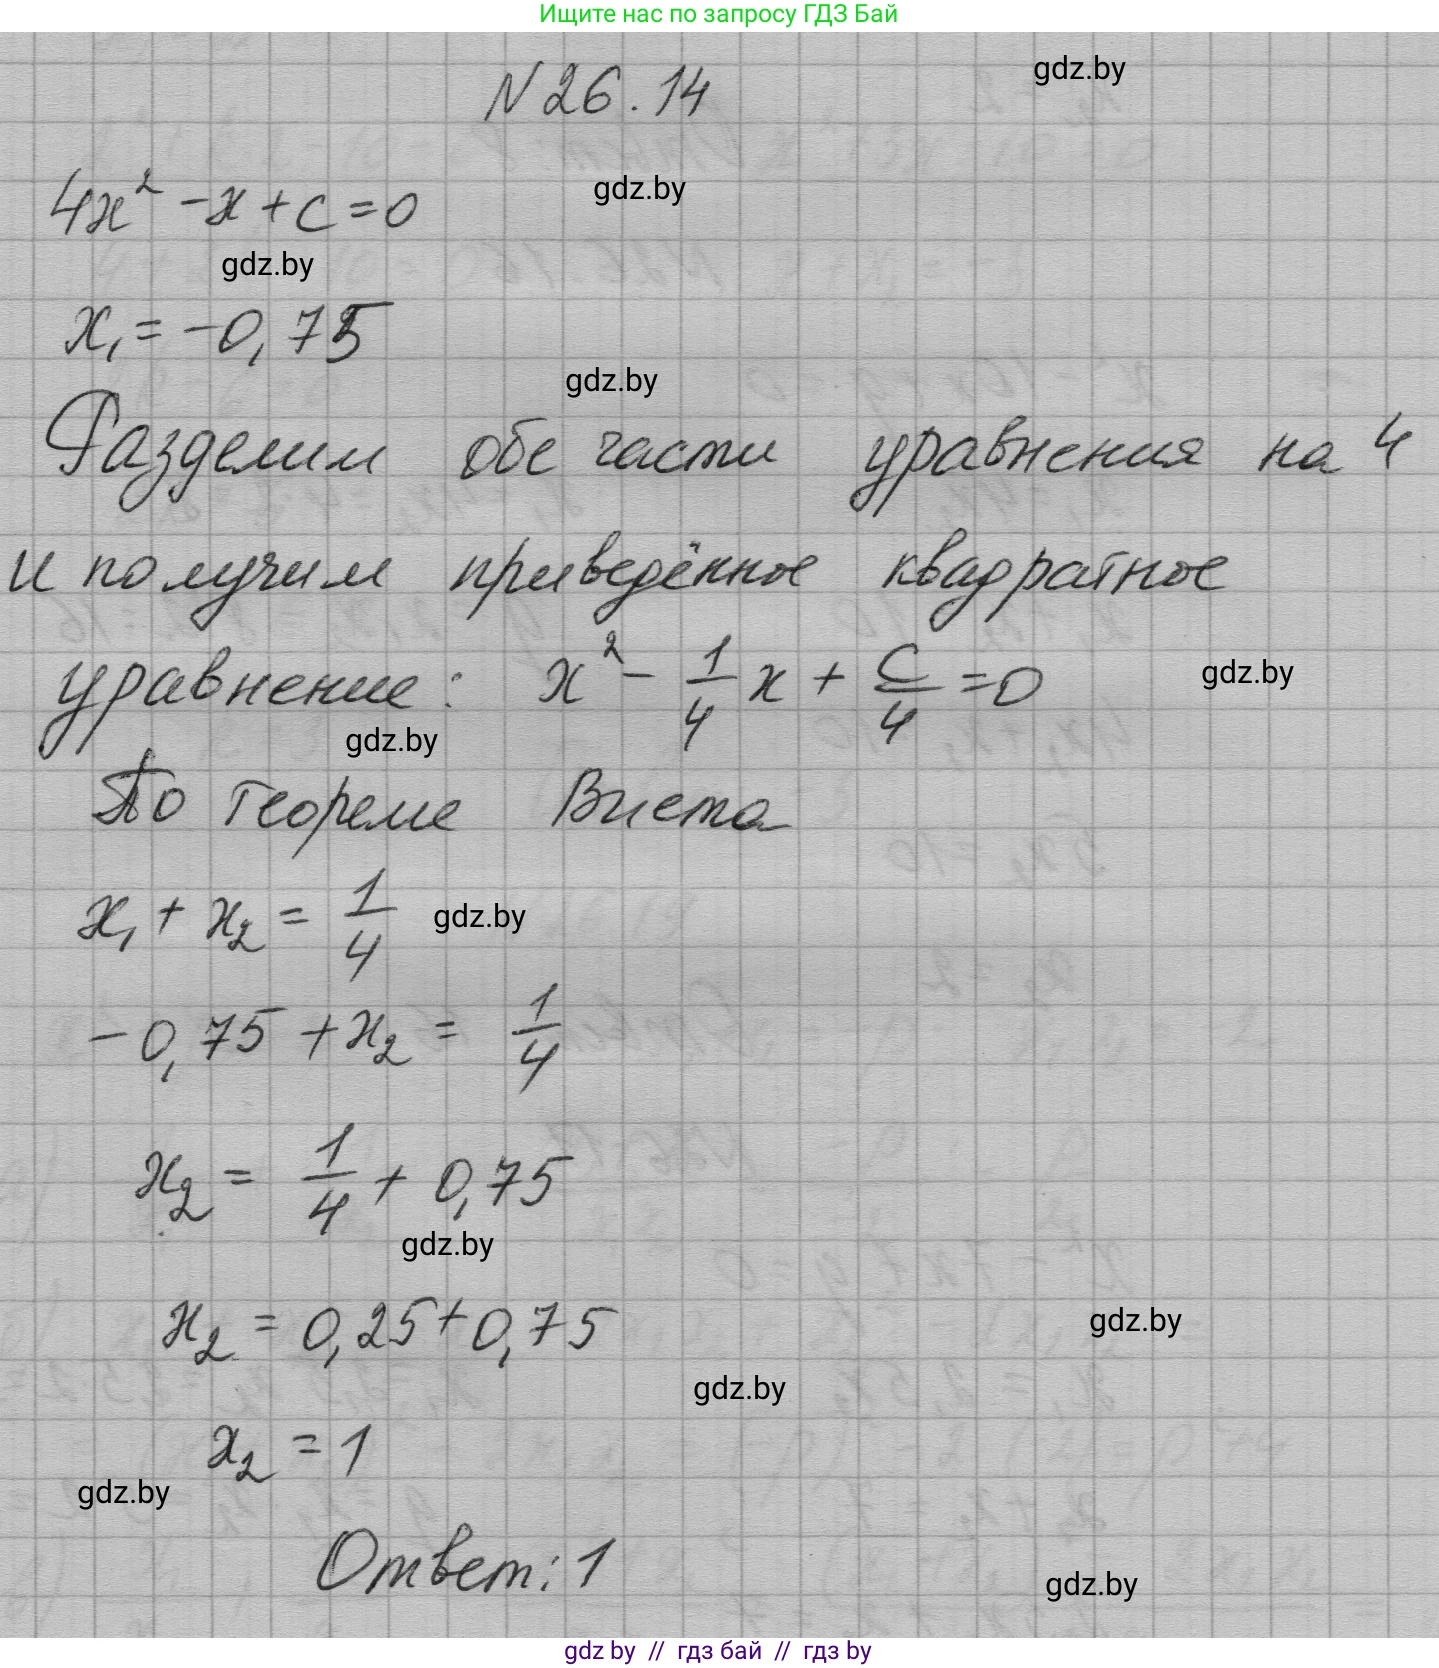 Ищите нас по запросу ГДЗ Бай
N 26.14
gdz.by
4x² - x + c = 0
gdz.by
gdz.by
x₁ = -0,75
gdz.by
Разделим обе части уравнения на 4
и получим приведённое квадратное
уравнение: x² - 1/4 x + c/4 = 0
gdz.by
gdz.by
По теореме Виета
x₁ + x₂ = 1/4
gdz.by
-0,75 + x₂ = 1/4
x₂ = 1/4 + 0,75
gdz.by
x₂ = 0,25 + 0,75
gdz.by
gdz.by
x₂ = 1
gdz.by
Ответ: 1
gdz.by
gdz by // гдз бай // гдз by